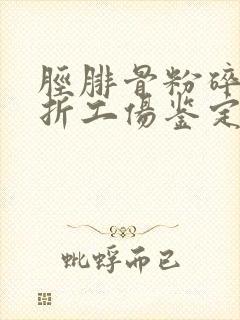 脛腓骨粉碎
折工傷鉴定
蚍蜉而已